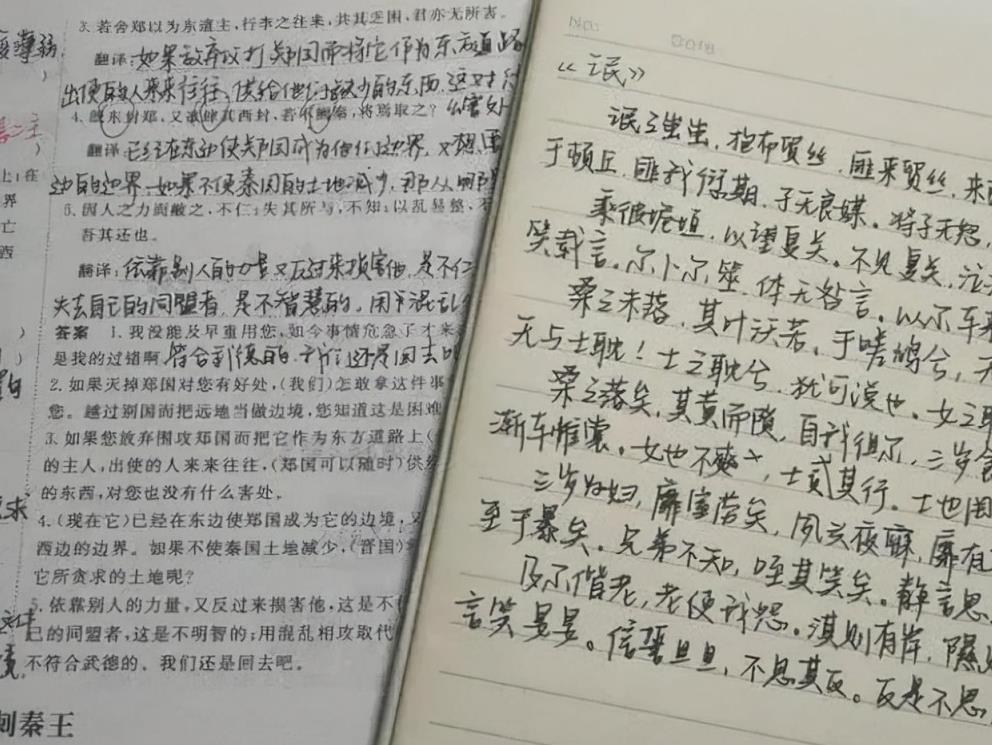 3. 若舍郑以为东道主，行李之往来，共其乏困，君亦无所害。
翻译：如果放弃攻打郑国而将它作为东方道路
出使的人来来往往，供给他们缺少的东西，这对
么害处
4. 既东封郑，又欲肆其西封，若不阙秦，将焉取之？
翻译：已经在东边使郑国成为他们边界，又想
边的边界，如果不使秦国的土地减少，那从哪里
5. 因人之力而敝之，不仁；失其所与，不知；以乱易整，不
吾其还也。
翻译：依靠别人的力量又反过来损害他，是不仁
失去自己的同盟者，是不智慧的，用混乱
答案 1. 我没能及早重用您，如今事情危急了才来
是我的过错啊 符合武德的，我们还是回去吧
2. 如果灭掉郑国对您有好处，(我们)怎敢拿这件事
您。越过别国而把远地当做边境，您知道这是困难
3. 如果您放弃围攻郑国而把它作为东方道路上(
的主人，出使的人来来往往，(郑国可以随时)供给
的东西，对您也没有什么害处。
4. (现在它)已经在东边使郑国成为它的边境，又
西边的边界。如果不使秦国土地减少，(晋国)
它所贪求的土地呢？
5. 依靠别人的力量，又反过来损害他，这是不
己的同盟者，这是不明智的；用混乱相攻取代
不符合武德的。我们还是回去吧。
刺秦王
上：在
界
亡
西
《氓》
氓之蚩蚩，抱布贸丝，匪来贸丝，来
于顿丘，匪我愆期，子无良媒。将子无怒，
乘彼垝垣，以望复关。不见复关，泣
笑载言。尔卜尔筮，体无咎言。以尔车来
桑之未落，其叶沃若。于嗟鸠兮，无
无与士耽！士之耽兮，犹可说也。女之耽
桑之落矣，其黄而陨，自我徂尔，三岁食
渐车帷裳。女也不爽，士贰其行。士也罔
三岁为妇，靡室劳矣，夙兴夜寐，靡有
至于暴矣。兄弟不知，咥其笑矣。静言思
及尔偕老，老使我怨。淇则有岸，隰
言笑晏晏。信誓旦旦，不思其反。反是不思，